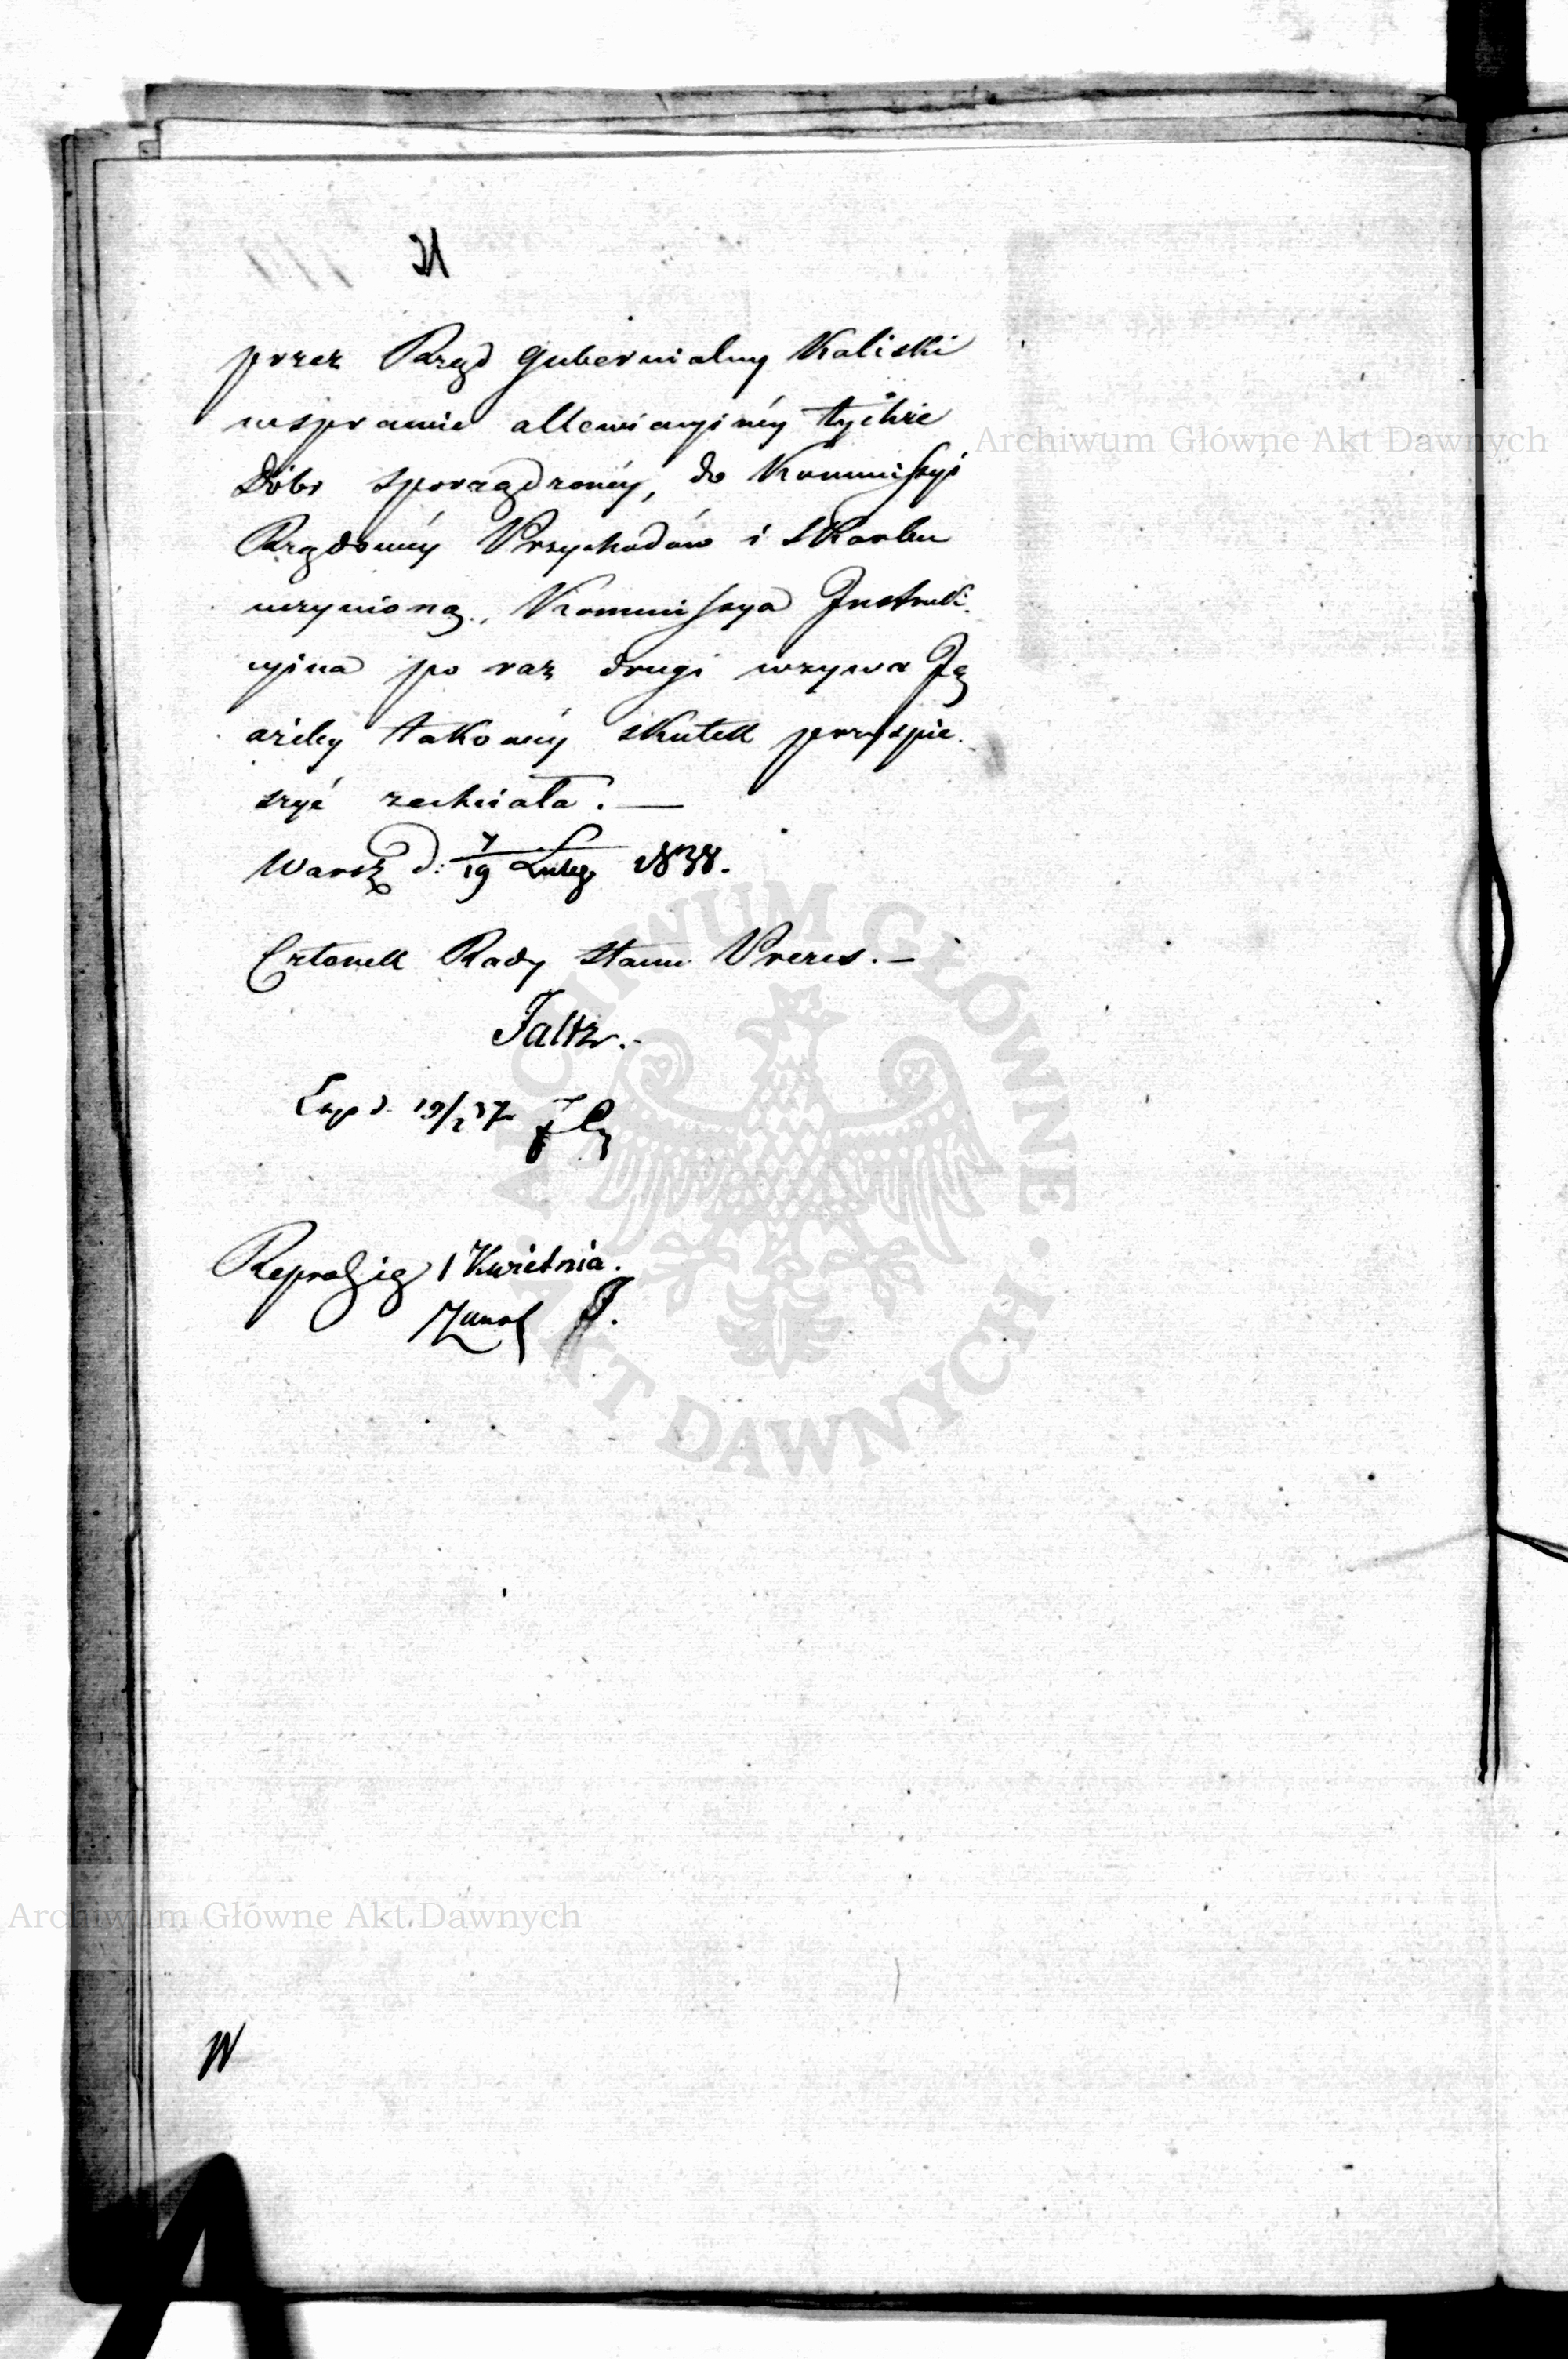 21
przez Rząd Gubernialny Kaliski
wsprawie allewiacyinéy tychże
Dóbr sporządzonéy, do Kommissyi
Rządowéy Przychodów i Skarbu
uczynioną., Kommissya Instruk.
cyina po raz drugi wzywa Ją
ażeby takowéy skutek przyspie.
szyć zechciała. —
Warsz d: 7/19 Lutego 1838.
Członek Rady Stanu Prezes. —
Faltz.
Exp d. 19/2 37
1 Kwietnia.
Archiwum Główne Akt Dawnych
ARCHIWUM GŁÓWNE
AKT DAWNYCH
Archiwum Główne Akt Dawnych
W